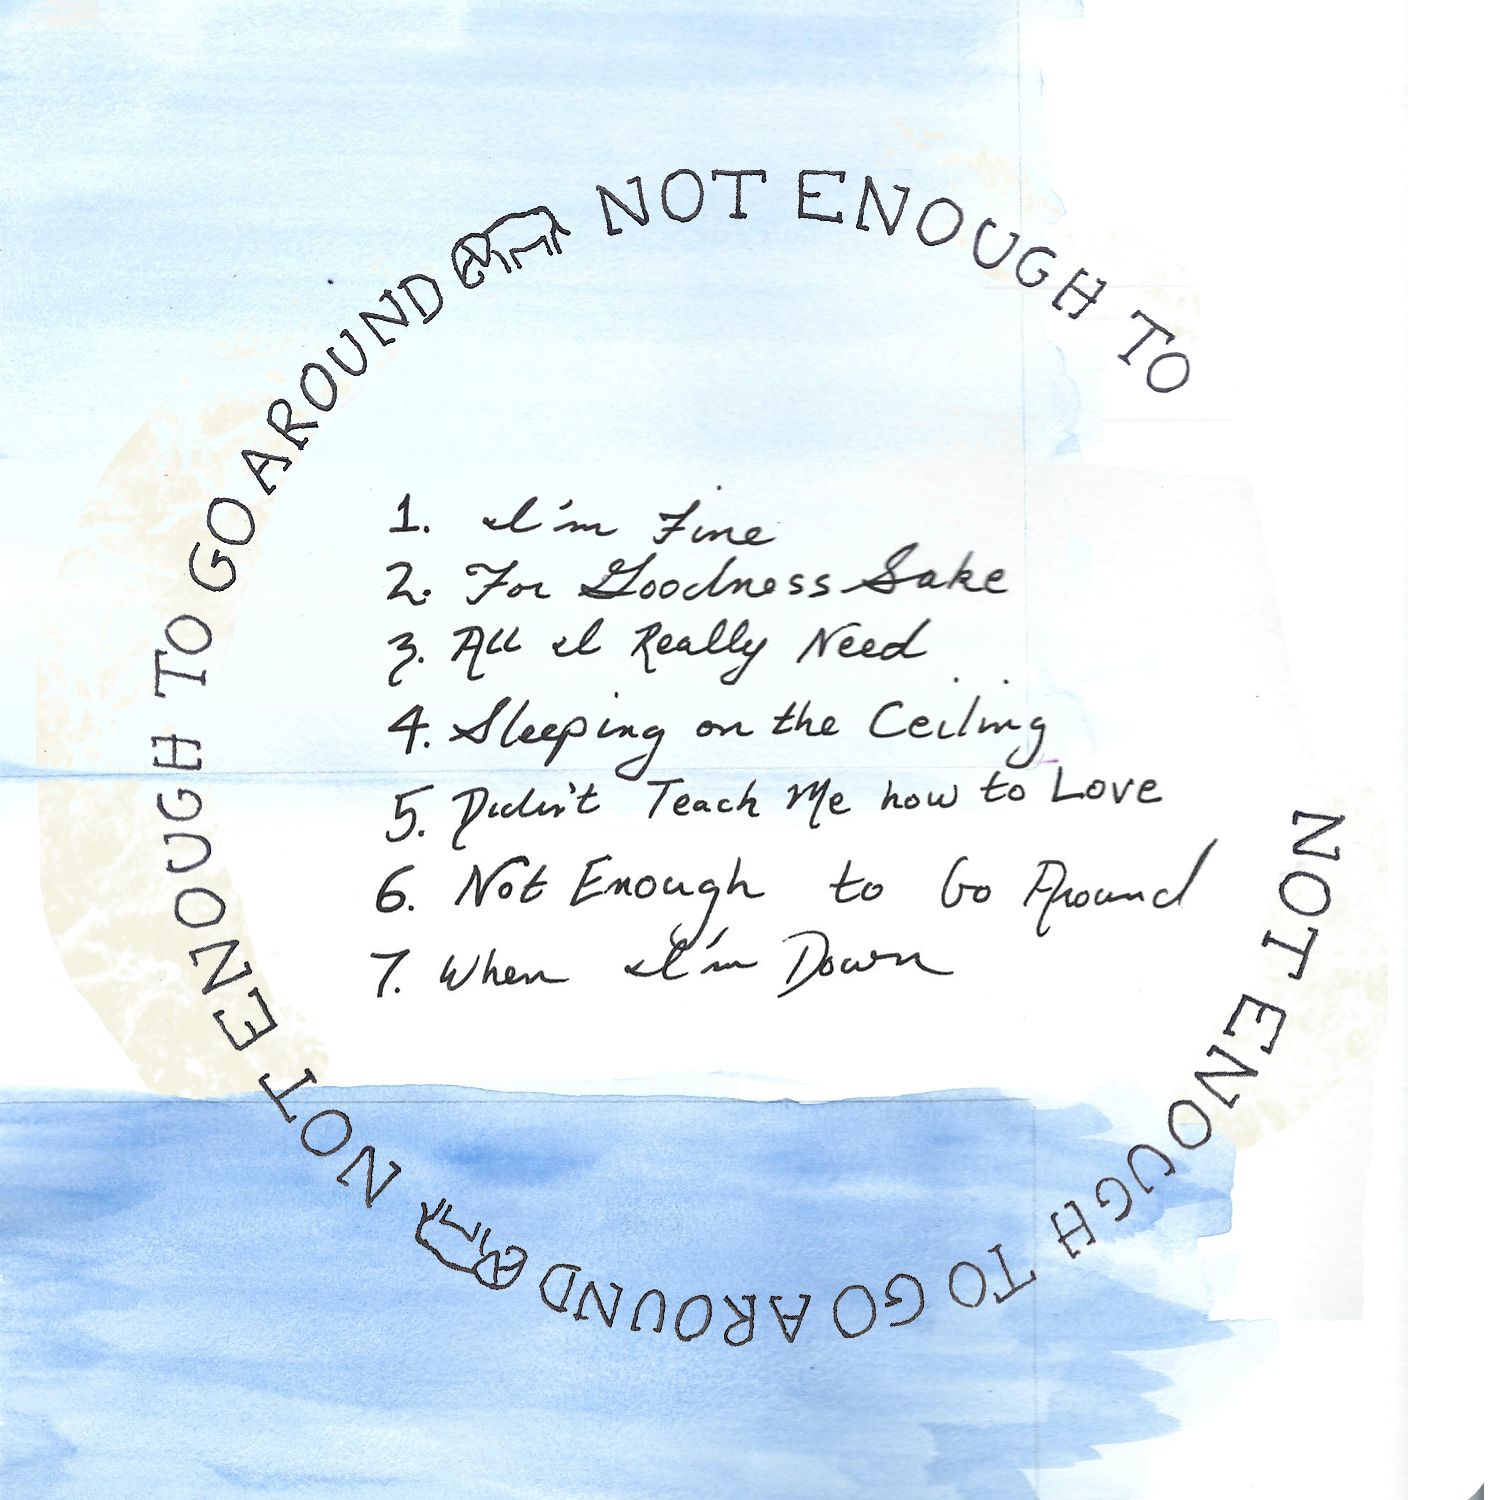 NOT ENOUGH TO
NOT ENOUGH TO GO AROUND
NOT ENOUGH TO GO AROUND
1. I'm Fine
2. For Goodness Sake
3. All I Really Need
4. Sleeping on the Ceiling
5. Didn't Teach Me how to Love
6. Not Enough to Go Around
7. When I'm Down